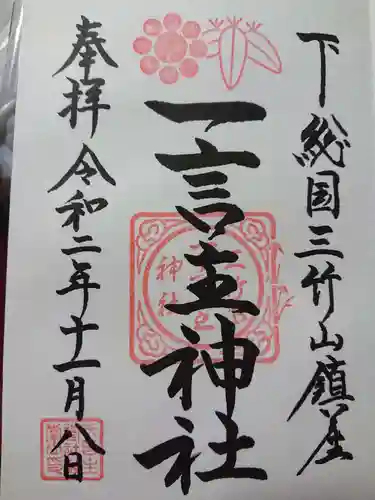 下総国三竹山鎮座
一言主神社
奉拝 令和二年十一月八日